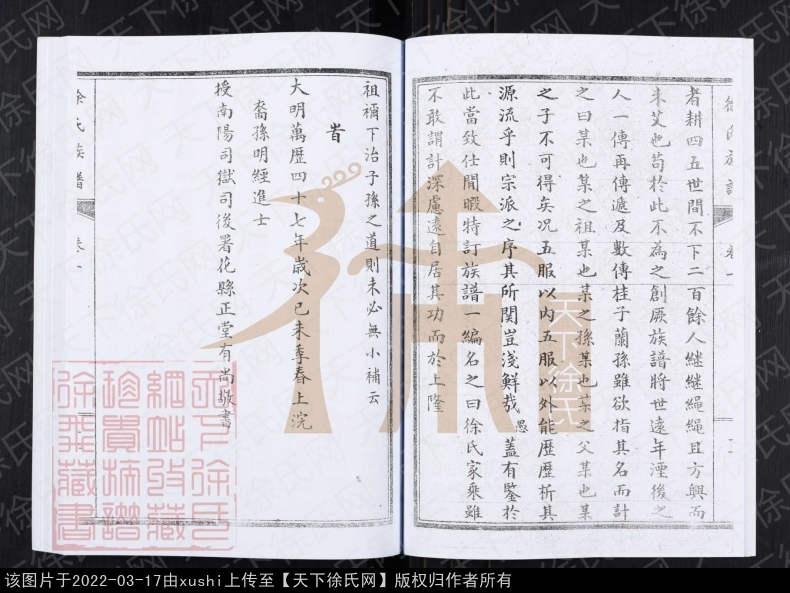 者耕四五世間不下二百餘人継継繩繩且方興而
未艾也苟於此不為之創厥族譜將世遠年湮後之
人一傳再傳遞及數傳桂子蘭孫雖欲指其名而計
之曰某也某之祖某也某之孫某也某之父某也某
之子不可得矣况五服以內五服以外能歷歷析其
源流乎則宗派之序其所関豈淺鮮哉愚蓋有鑒於
此當致仕閒暇特訂族譜一編名之曰徐氏家乘雖
不敢謂計深慮遠自居其功而於上隆
祖禰下治子孫之道則未必無小補云
旹
大明萬歷四十七年歲次己未季春上浣
裔孫明經進士
授南陽司獄司後署花縣正堂有尚敬書
徐氏族譜
卷一
徐氏族譜
卷一
天下徐氏
天下徐氏网
该图片于2022-03-17由xushi上传至【天下徐氏网】版权归作者所有